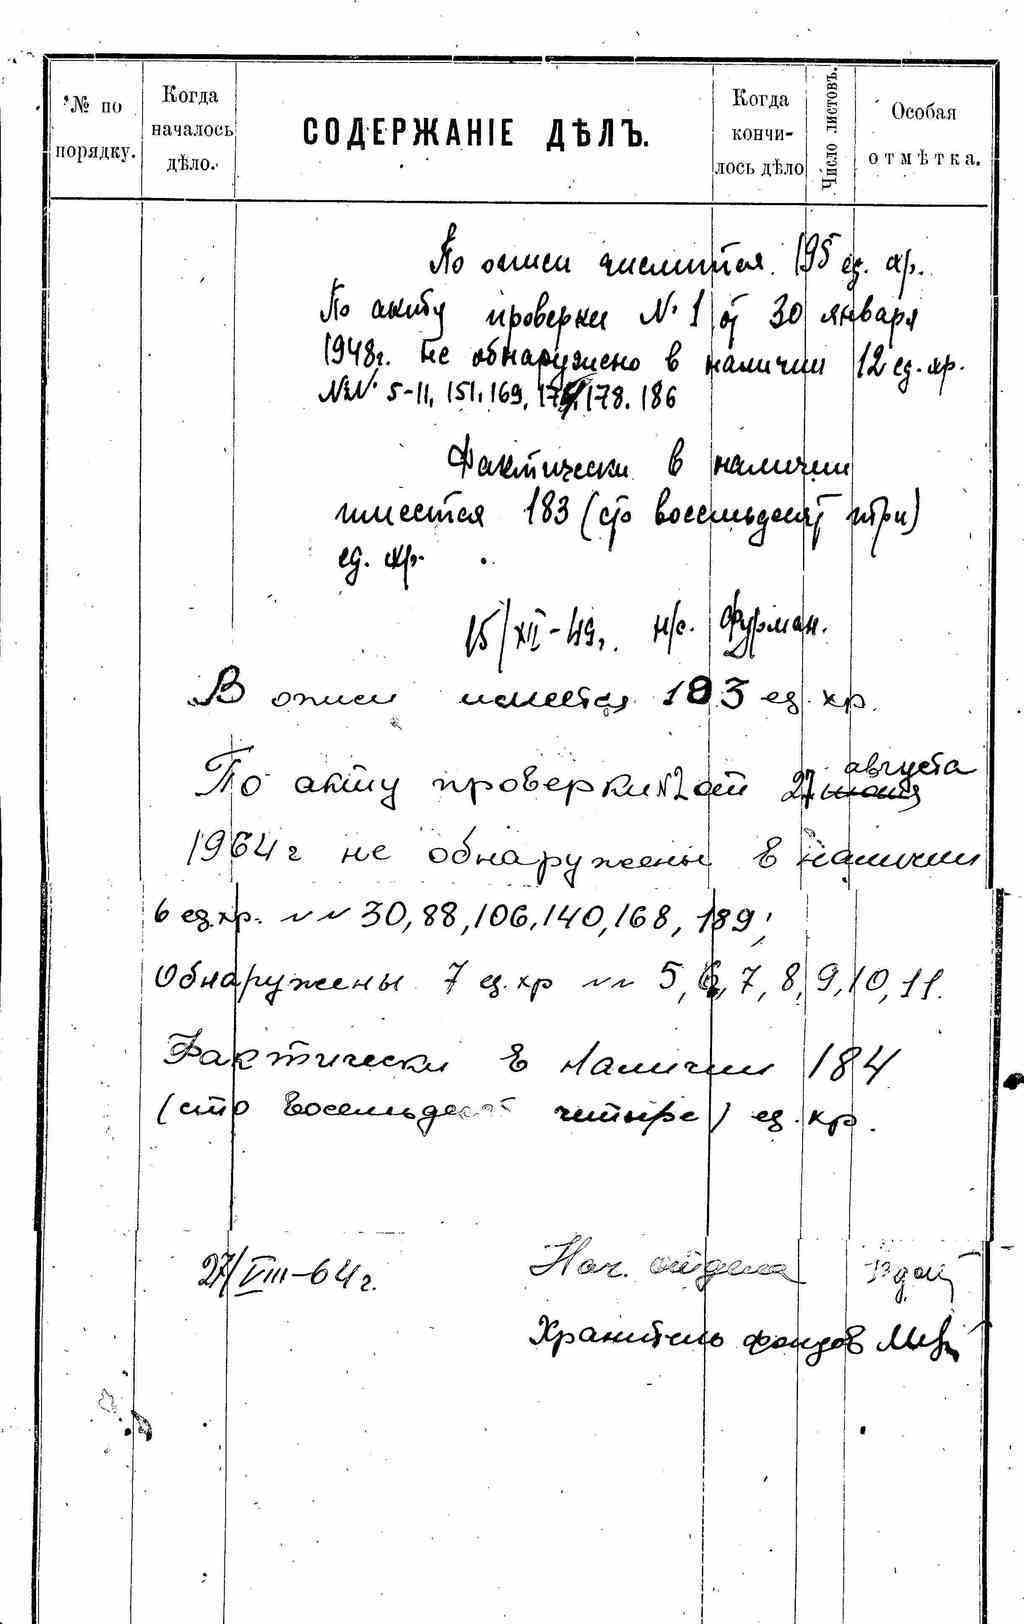 № по порядку.
Когда началось дѣло.
СОДЕРЖАНІЕ ДѢЛЪ.
Когда кончи-лось дѣло
Число листовъ.
Особая отмѣтка.
По описи числится 195 ед. хр.
По акту проверки №1 от 30 января
1948г. не обнаружено в наличии 12 ед. хр.
№№ 5-11, 151, 169, 178. 186
Фактически в наличии
имеется 183 (сто восемьдесят три)
ед. хр.
15/XII-49г. н/с. Фурман.
В описи имеется 183 ед. хр.
По акту проверки №2 от 27 августа
1964г не обнаружены в наличии
6 ед. хр. №№ 30, 88, 106, 140, 168, 189;
Обнаружены 7 ед. хр №№ 5, 6, 7, 8, 9, 10, 11.
Фактически в наличии 184
(сто восемьдесят четыре) ед. хр.
27/VIII-64г. Нач. отдела
Хранитель фондов